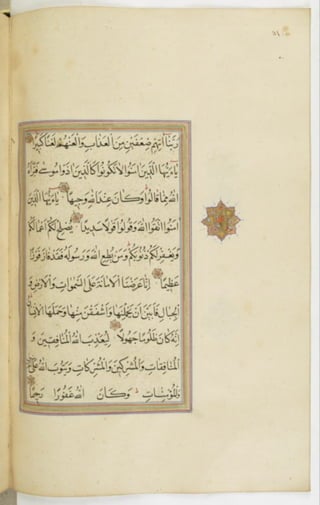 ٢١
رَبَّنَا آتِهِمْ ضِعْفَيْنِ مِنَ الْعَذَابِ وَالْعَنْهُمْ لَعْنًا كَبِيرًا
يَا أَيُّهَا الَّذِينَ آمَنُوا لَا تَكُونُوا كَالَّذِينَ آذَوْا مُوسَى فَبَرَّأَهُ
اللَّهُ مِمَّا قَالُوا وَكَانَ عِنْدَ اللَّهِ وَجِيهًا يَا أَيُّهَا الَّذِينَ
آمَنُوا اتَّقُوا اللَّهَ وَقُولُوا قَوْلًا سَدِيدًا يُصْلِحْ لَكُمْ أَعْمَالَكُمْ
وَيَغْفِرْ لَكُمْ ذُنُوبَكُمْ وَمَنْ يُطِعِ اللَّهَ وَرَسُولَهُ فَقَدْ فَازَ فَوْزًا
عَظِيمًا إِنَّا عَرَضْنَا الْأَمَانَةَ عَلَى السَّمَوَاتِ وَالْأَرْضِ وَ
الْجِبَالِ فَأَبَيْنَ أَنْ يَحْمِلْنَهَا وَأَشْفَقْنَ مِنْهَا وَحَمَلَهَا الْإِنْسَانُ
إِنَّهُ كَانَ ظَلُومًا جَهُولًا لِيُعَذِّبَ اللَّهُ الْمُنَافِقِينَ وَ
الْمُنَافِقَاتِ وَالْمُشْرِكِينَ وَالْمُشْرِكَاتِ وَيَتُوبَ اللَّهُ عَلَى
وَالْمُؤْمِنَاتِ وَكَانَ اللَّهُ غَفُورًا رَحِيمًا